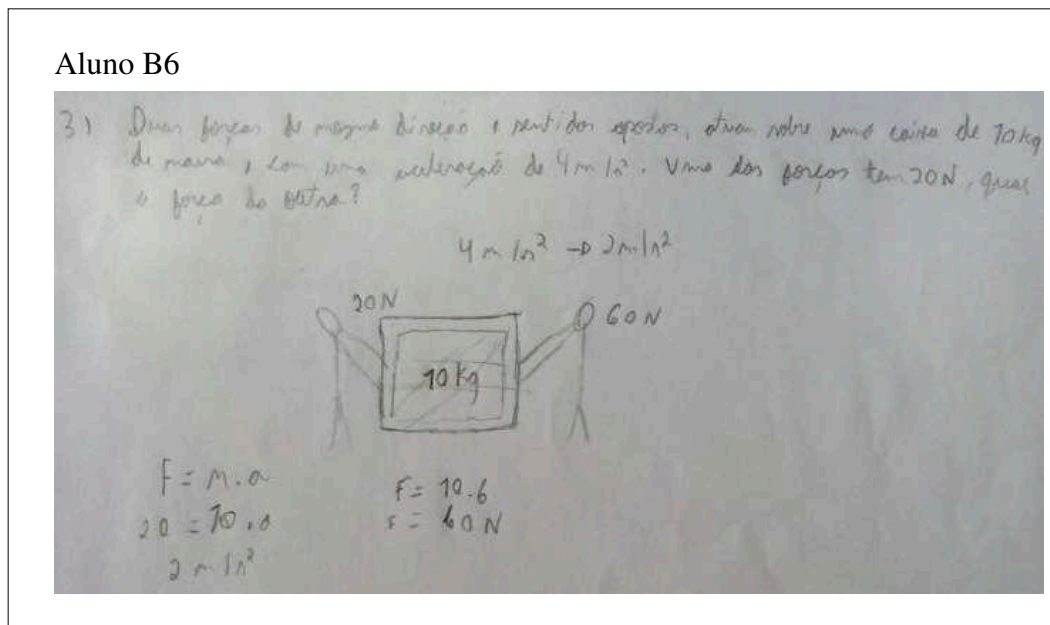 Aluno B6
3) Duas forças de mesma direção e sentidos opostos, atuam sobre uma caixa de 10 kg
de massa, com uma aceleração de 4 m/s². Uma das forças tem 20N, qual
a força da outra?
4 m/s² → 2 m/s²
20N
60N
10 kg
F = m.a
20 = 10.a
2 m/s²
F = 10.6
F = 60N